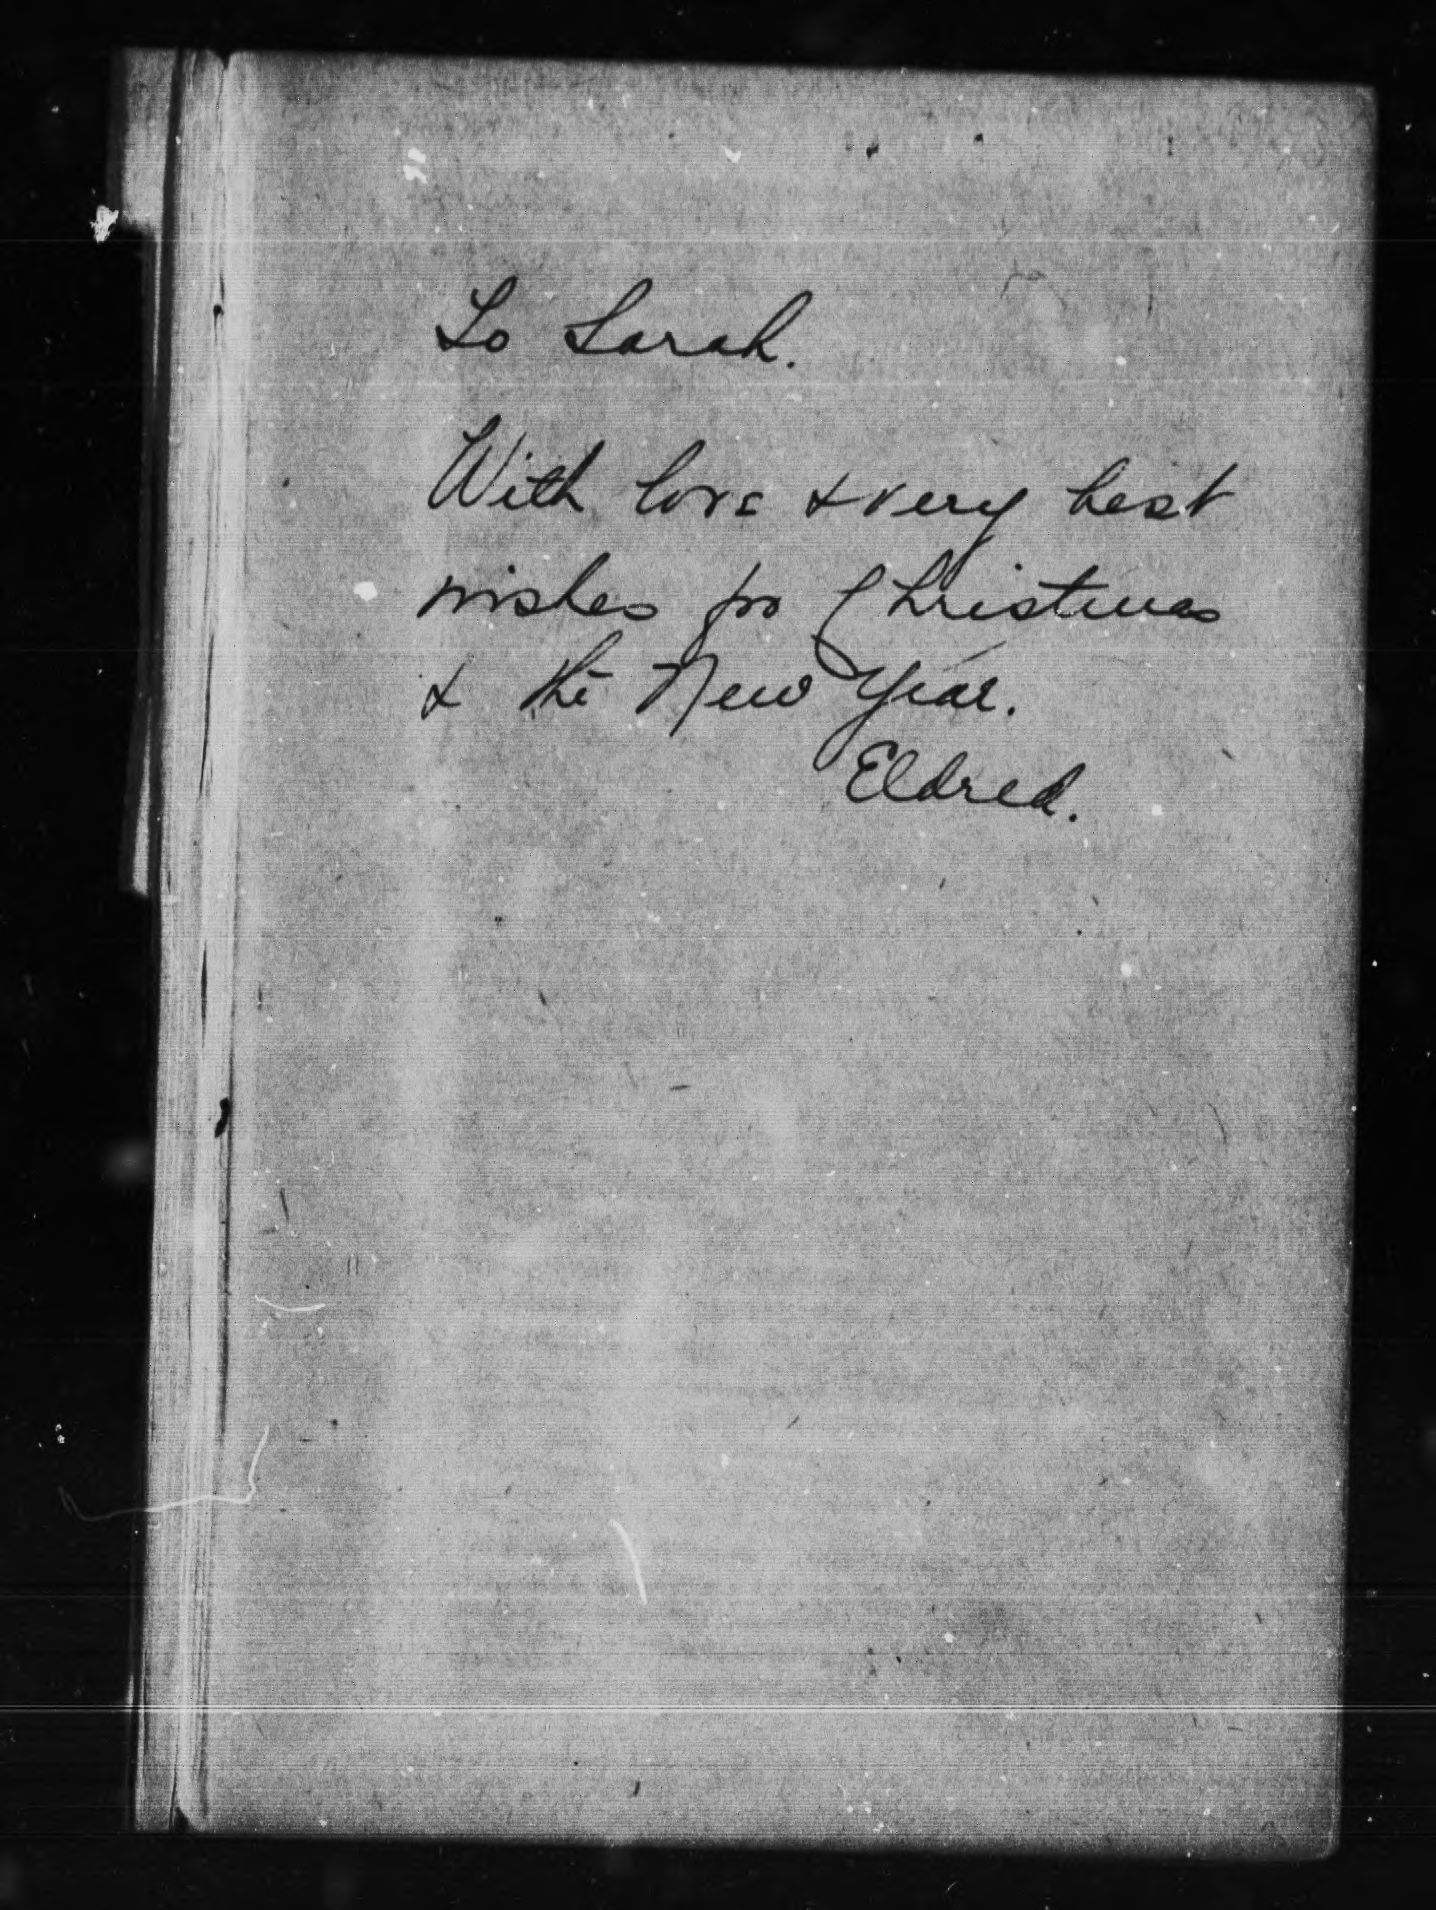 To Sarah.
With love & very best
wishes for Christmas
& the New Year.
Eldred.